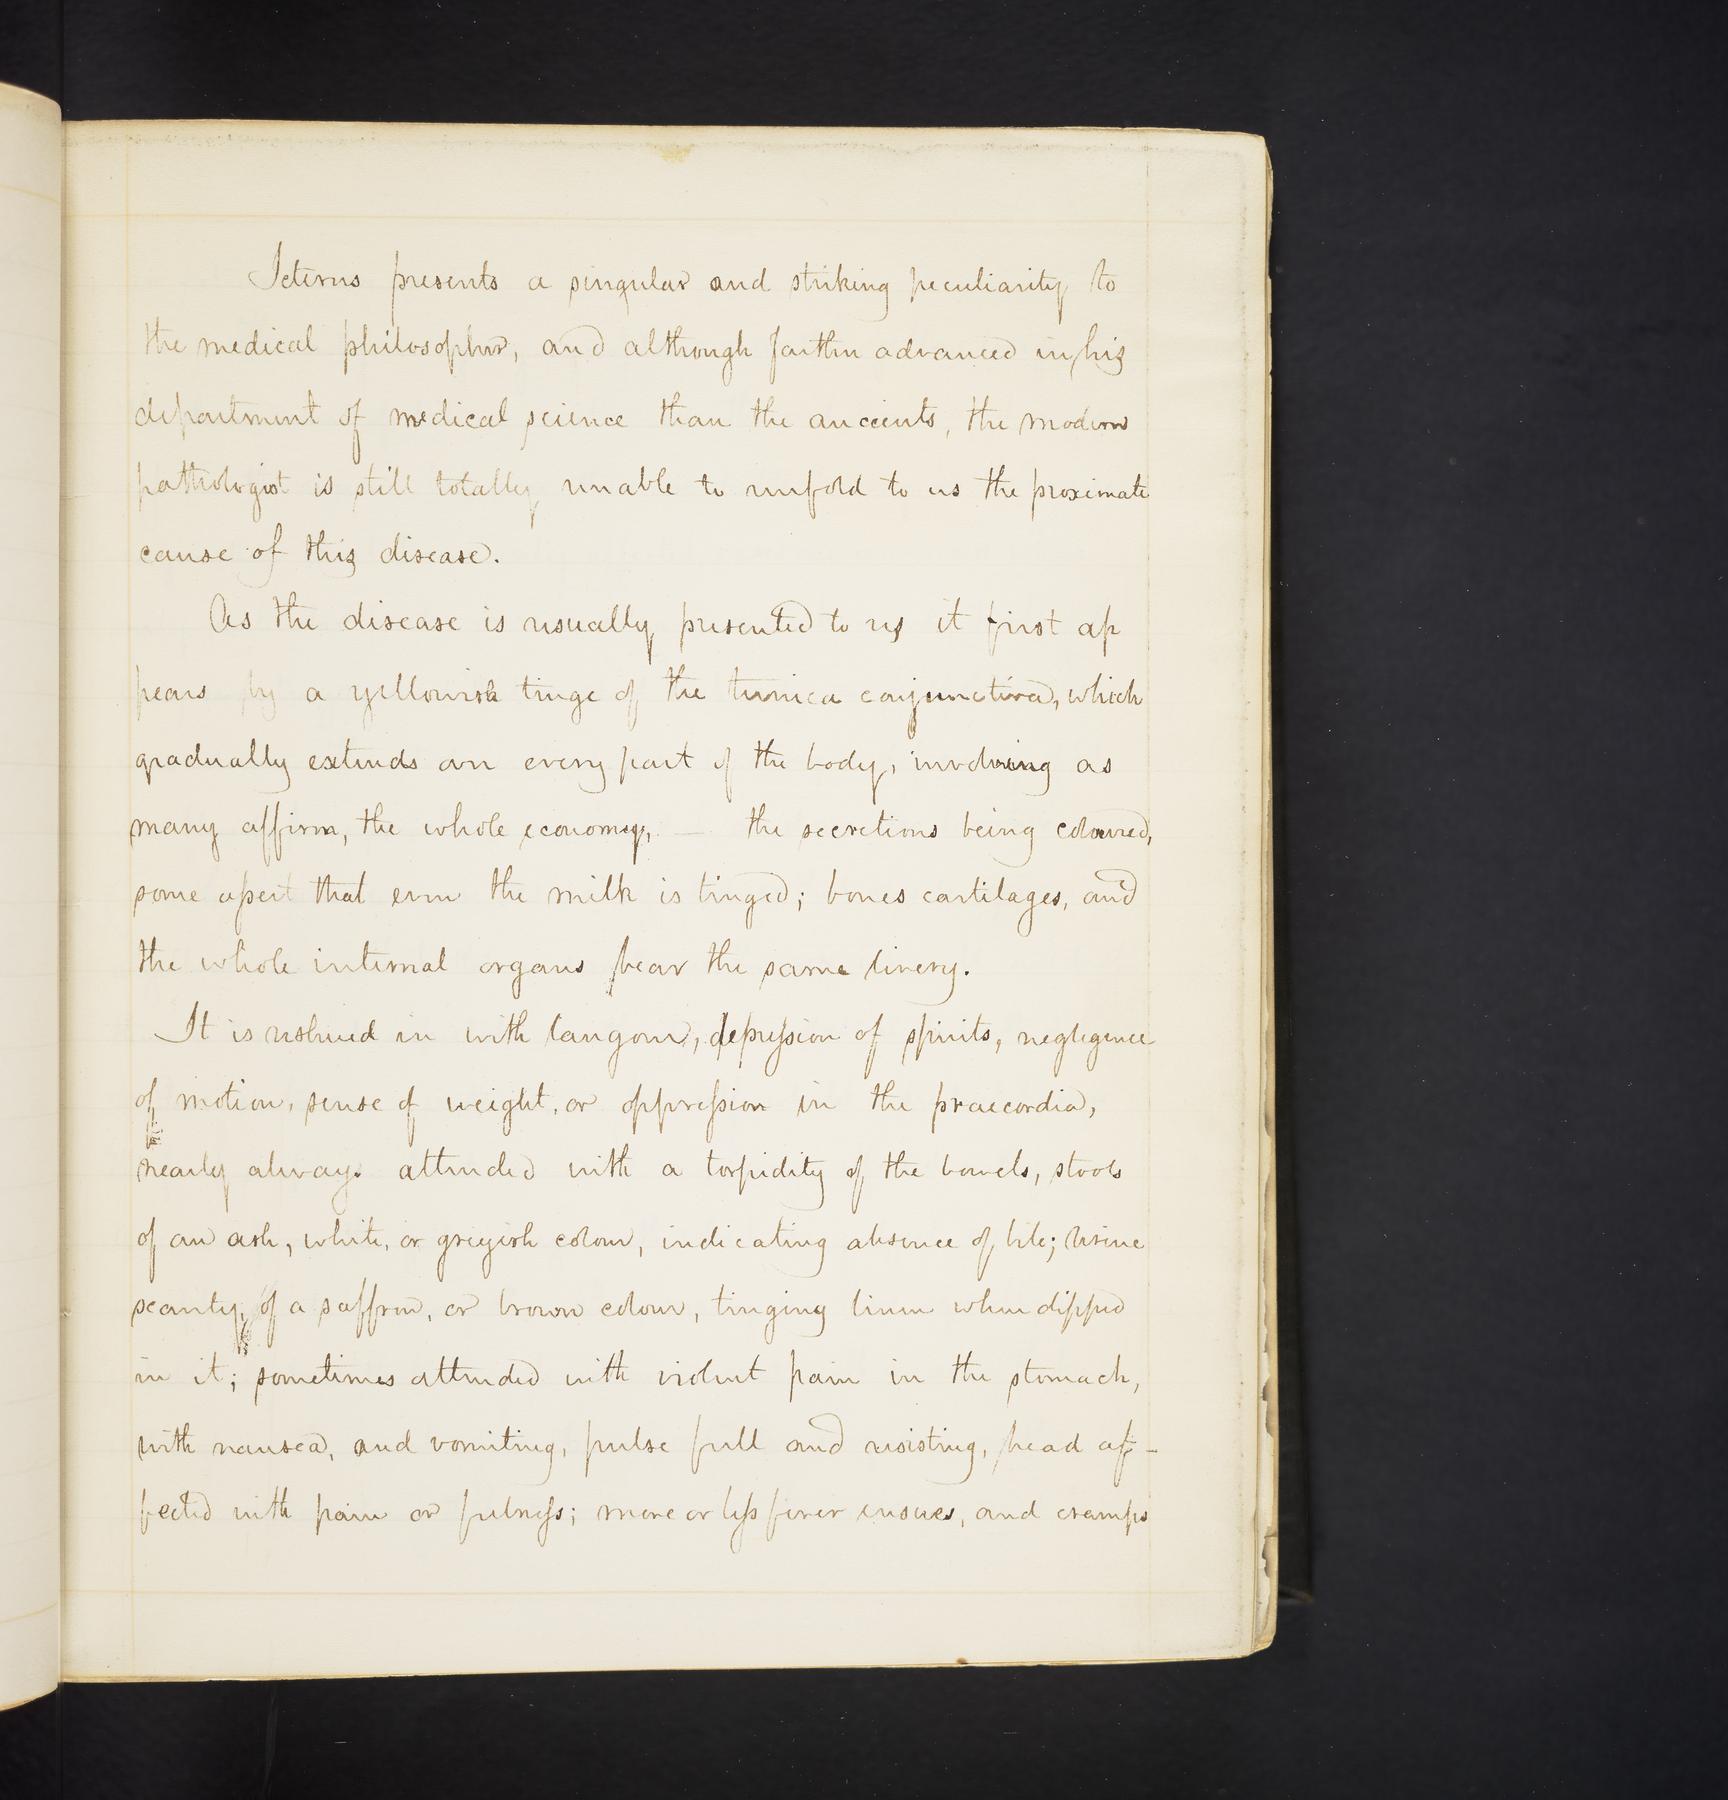 Icterus presents a singular and striking peculiarity to
the medical philosopher, and although farther advanced in his
department of medical science than the ancients, the modern
pathologist is still totally unable to unfold to us the proximate
cause of this disease.
As the disease is usually presented to us it first ap
pears by a yellowish tinge of the tunica conjunctiva, which
gradually extends over every part of the body, involving as
many affirm, the whole economy, — the secretions being coloured,
some assert that even the milk is tinged; bones cartilages, and
the whole internal organs bear the same livery.
It is ushered in with langour, depression of spirits, neglegence
of motion, sense of weight, or oppression in the praecordia,
nearly always attended with a torpidity of the bowels, stools
of an ash, white, or greyish colour, indicating absence of bile; urine
scanty, of a saffron, or brown colour, tinging linen when dipped
in it; sometimes attended with violent pain in the stomach,
with nausea, and vomiting, pulse full and resisting, head af-
fected with pain or fulness; more or less fever ensues, and cramps